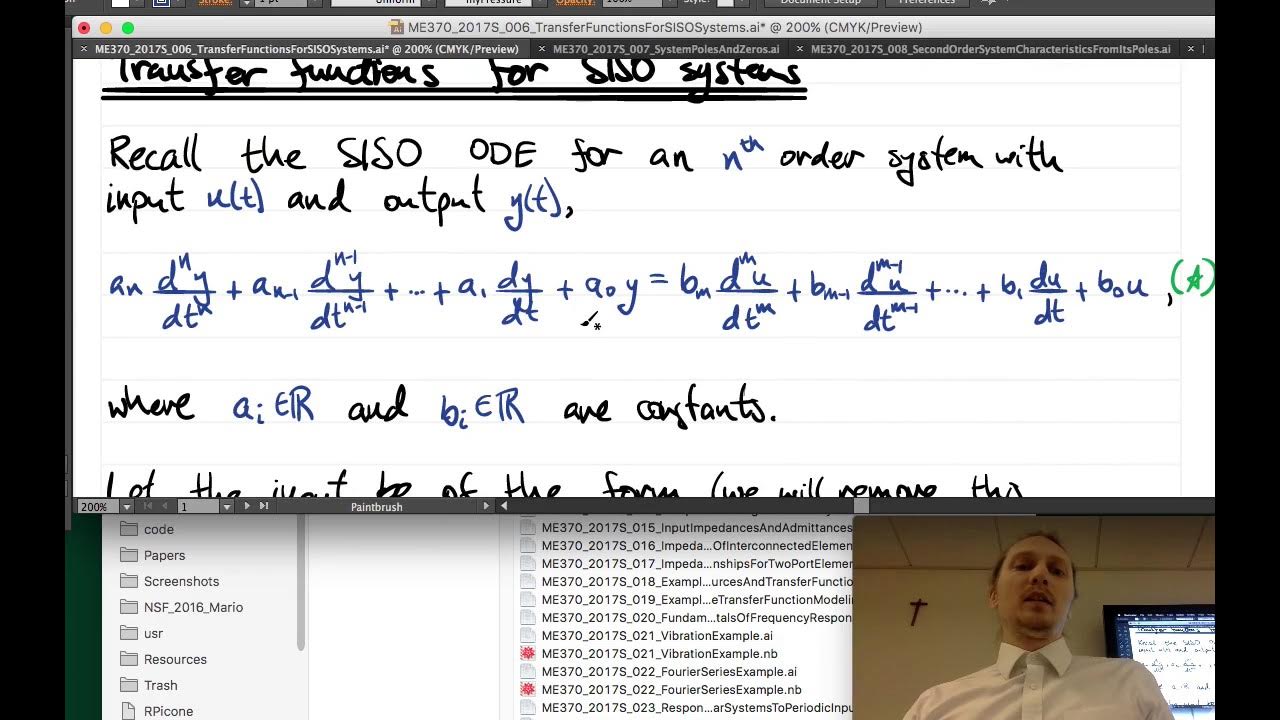 Stroke: 1 pt Uniform Opacity: 100% Style: Document Setup Preferences
ME370_2017S_006_TransferFunctionsForSISOSystems.ai* @ 200% (CMYK/Preview)
× ME370_2017S_006_TransferFunctionsForSISOSystems.ai* @ 200% (CMYK/Preview) × ME370_2017S_007_SystemPolesAndZeros.ai × ME370_2017S_008_SecondOrderSystemCharacteristicsFromItsPoles.ai ×
Transfer functions for SISO systems
Recall the SISO ODE for an nᵗʰ order system with
input u(t) and output y(t),
aₙ dⁿy/dtⁿ + aₙ₋₁ dⁿ⁻¹y/dtⁿ⁻¹ + ... + a₁ dy/dt + a₀y = bₘ dᵐu/dtᵐ + bₘ₋₁ dᵐ⁻¹u/dtᵐ⁻¹ + ... + b₁ du/dt + b₀u,
where aᵢ∈ℝ and bᵢ∈ℝ are constants.
Let the input be of the form (we will remove this
200% 1 Paintbrush
code
Papers
Screenshots
NSF_2016_Mario
usr
Resources
Trash
RPicone
ME370_2017S_015_InputImpedancesAndAdmittances
ME370_2017S_016_Impeda...OfInterconnectedElemen
ME370_2017S_017_Impeda...nshipsForTwoPortElemen
ME370_2017S_018_Exampl...urcesAndTransferFunctio
ME370_2017S_019_Exampl...eTransferFunctionModelin
ME370_2017S_020_Fundam...talsOfFrequencyRespon
ME370_2017S_021_VibrationExample.ai
ME370_2017S_021_VibrationExample.nb
ME370_2017S_022_FourierSeriesExample.ai
ME370_2017S_022_FourierSeriesExample.nb
ME370_2017S_023_Respon...arSystemsToPeriodicInpu